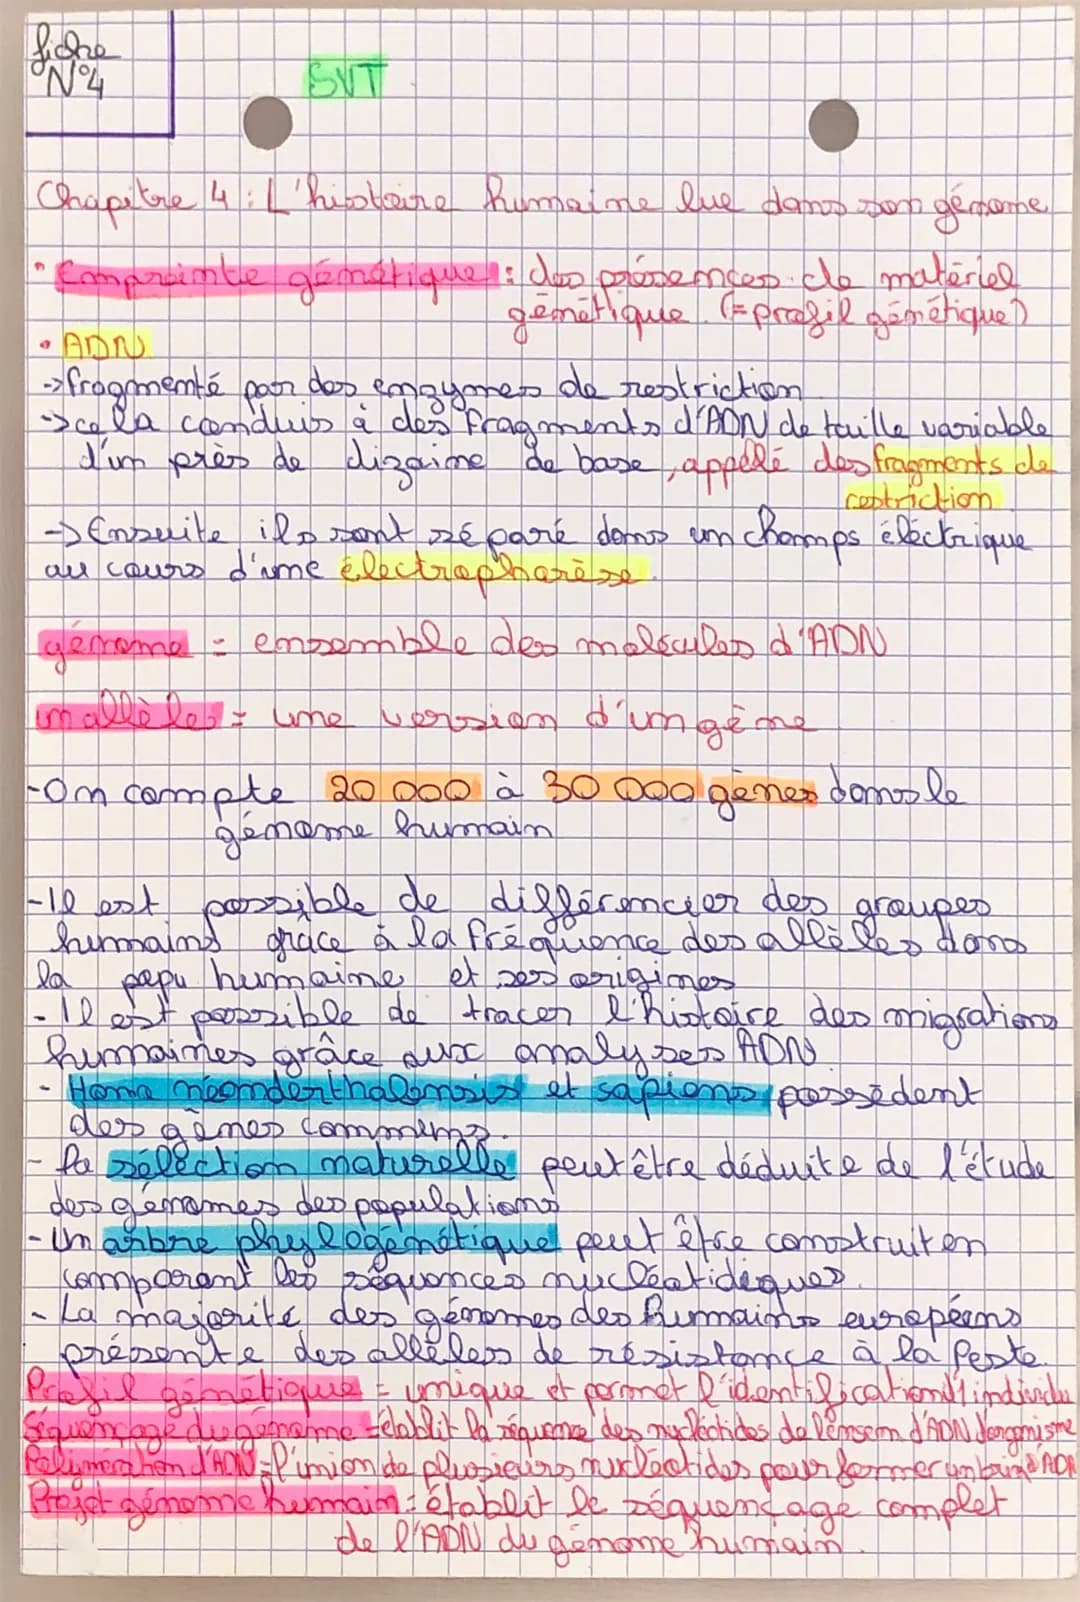 fiche
N°4
SVT
Chapitre 4 : L'histoire humaine lue dans son génome
• Empreinte génétique : des présences de matériel
génétique. (= profil génétique)
• ADN
-> fragmenté par des enzymes de restriction
-> cela conduis à des fragments d'ADN de taille variable
d'un près de dizaine de base, appellé des fragments de
restriction
-> Ensuite ils sont séparé dans un champs éléctrique
au cours d'une électrophorèse.
génome = ensemble des molécules d'ADN
allèles = une version d'un gène
- On compte 20 000 à 30 000 gènes dans le
génome humain
- Il est possible de différencier des groupes
humains grâce à la fréquence des allèles dans
la popu humaine et ses origines
- Il est possible de tracer l'histoire des migrations
humaines grâce aux analyses ADN
- Homo néanderthalensis et sapiens possèdent
des gènes communs.
- La séléction naturelle peut être déduite de l'étude
des génomes des populations
- Un arbre phylogénétique peut être construit en
comparant les séquences nucléotidiques.
- La majorité des génomes des humains européens
présente des allèles de résistance à la Peste.
Profil génétique = unique et permet l'identification d'1 individu
Séquençage du génome = établit la séquence des nucléotides de l'ensem d'ADN d'organisme
Polymérisation d'ADN = l'union de plusieurs nucléotides pour former un brin d'ADN
Projet génome humain = établit le séquençage complet
de l'ADN du génome humain.